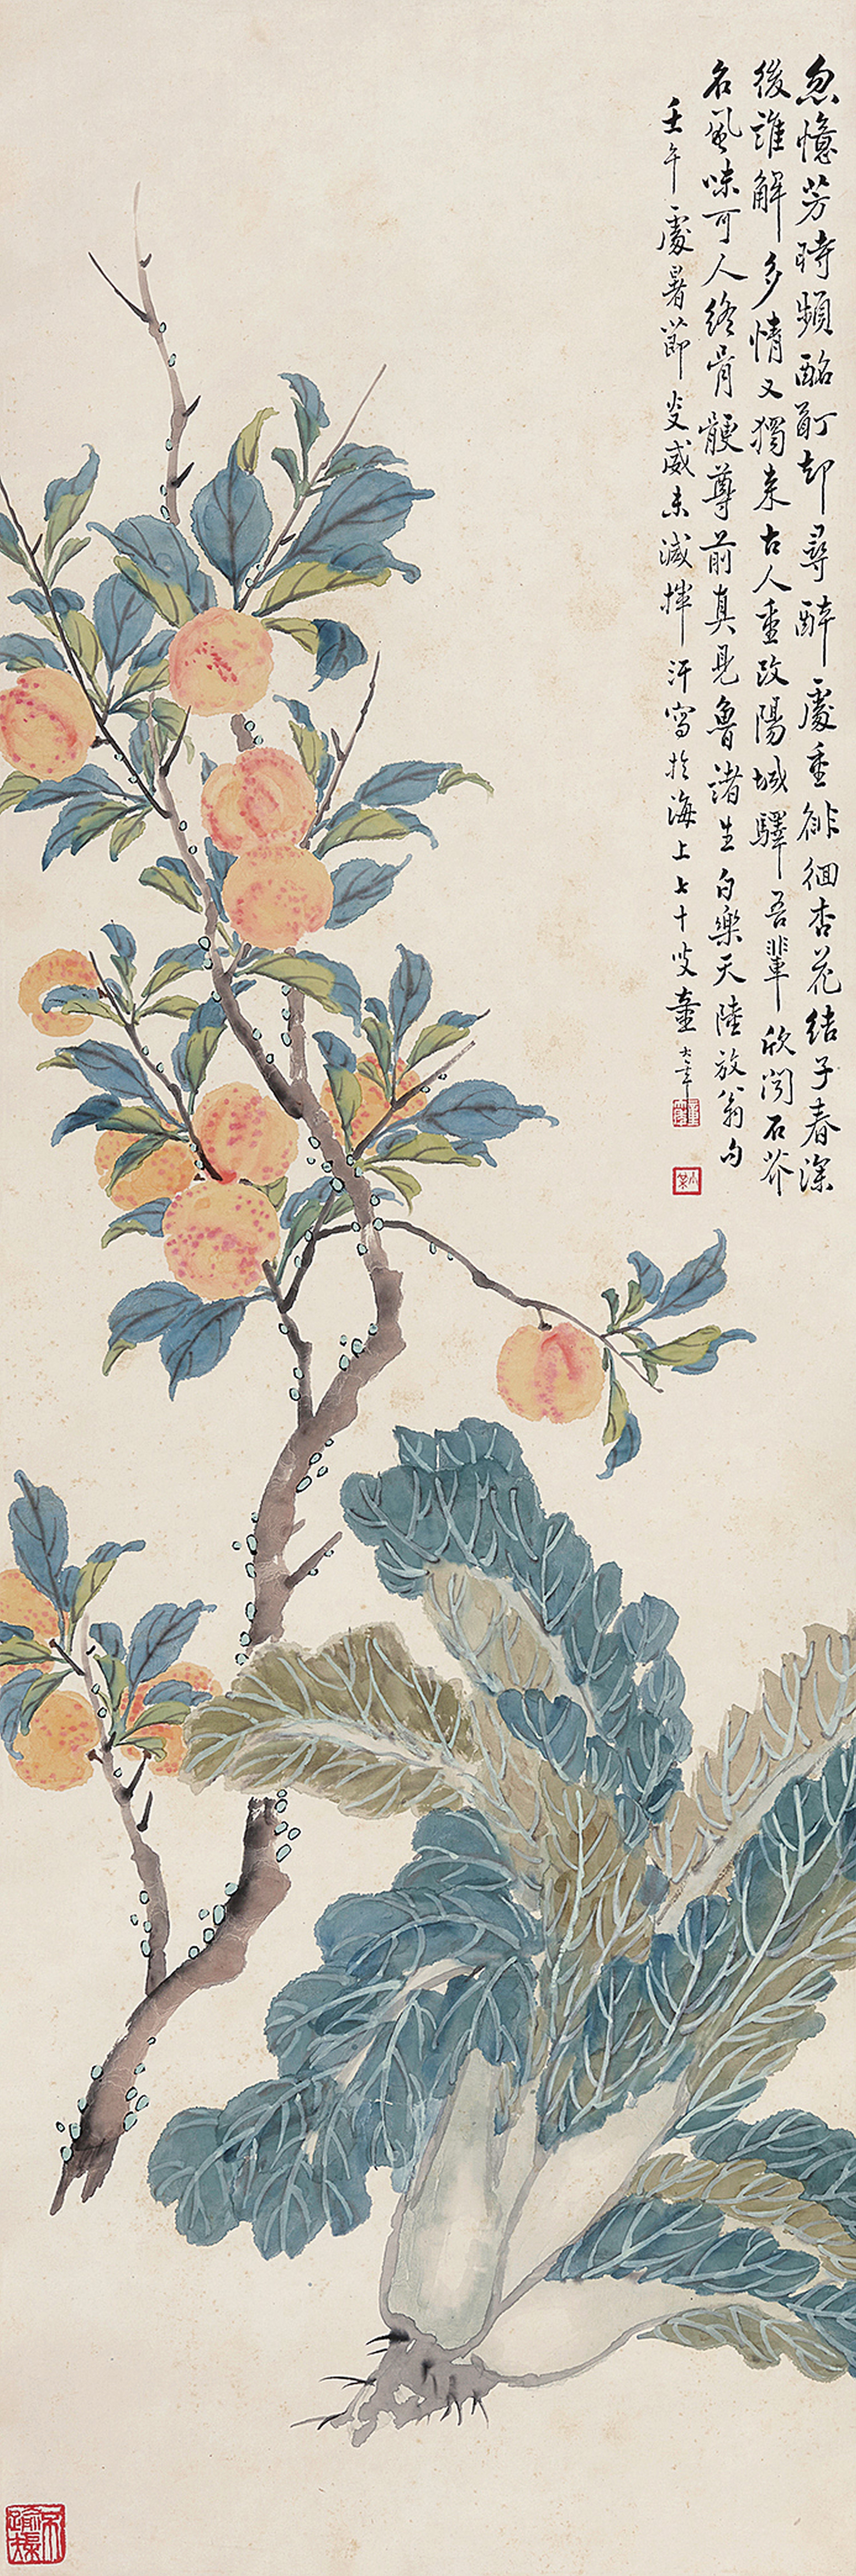 忽憶芳時頻酩酊却尋醉處重徘徊杏花結子春深
後誰解多情又獨來古人重改陽城驛吾輩欣聞石芥
名風味可人終骨骾尊前真見魯諸生白樂天陸放翁句
壬午處暑節炎威未減揮汗寫於海上七十叟童大年